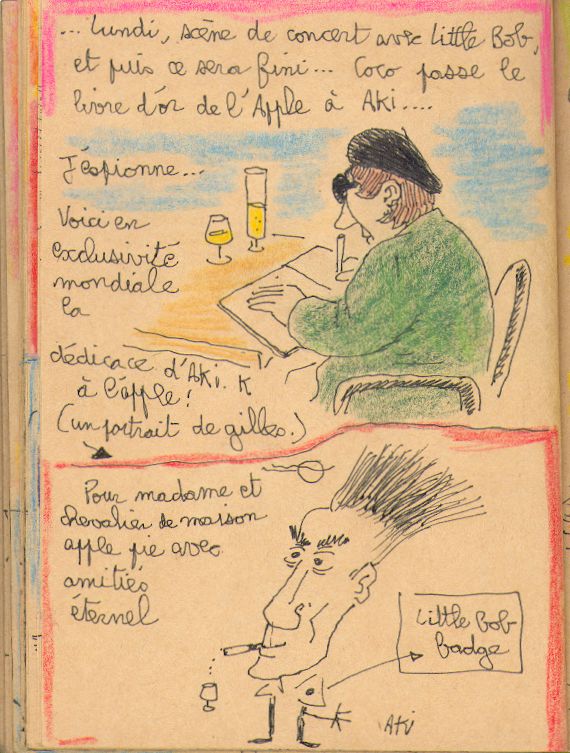 ... Lundi, scène de concert avec Little Bob,
et puis ce sera fini... Coco passe le
livre d'or de l'Apple à Aki....
J'espionne...
Voici en
exclusivité
mondiale
la
dédicace d'Aki. K
à l'apple!
(un portrait de gilles.)
Pour madame et
chevalier de maison
apple pie avec
amitiés
éternel
Little Bob
badge
Aki